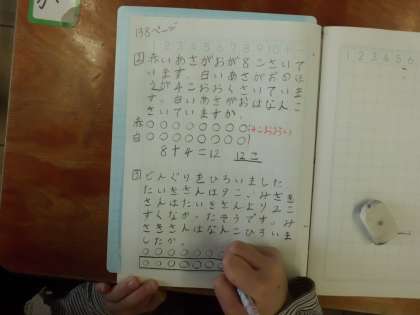 138ページ
1 2 3 4 5 6 7 8 9 10
② 赤いあさがおが8こさいて
います。白いあさがおのは
うが4こおおくさいていま
す。白いあさがおはなんこ
さいていますか。
赤○○○○○○○○(4こおおい)
白○○○○○○○○
8+4=12 12こ
③ どんぐりをひろいました
たいきさんは9こ、みさき
さんはたいきさんより2こ
すくなかったそうです。み
さきさんはなんこひろいま
したか。
1 2 3 4 5 6